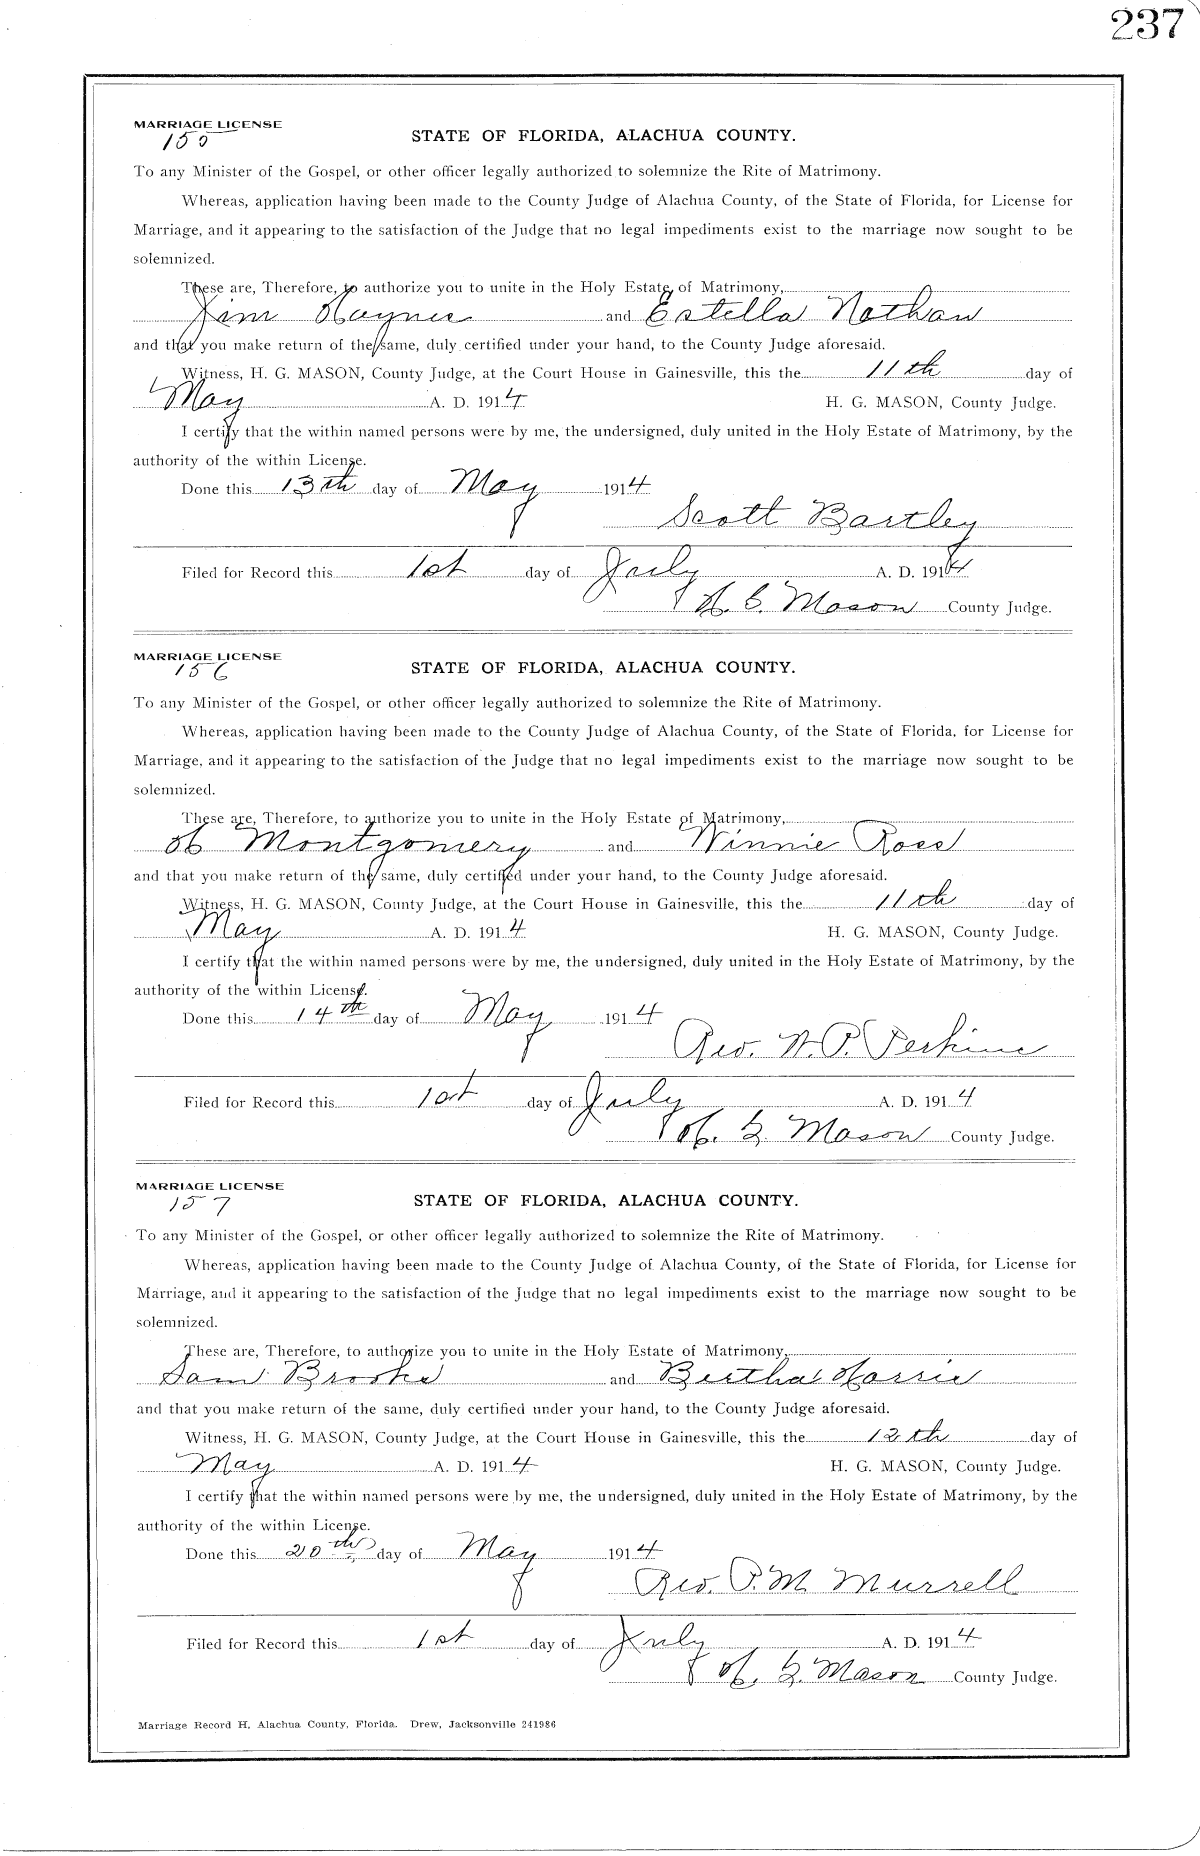 237
MARRIAGE LICENSE
155
STATE OF FLORIDA, ALACHUA COUNTY.
To any Minister of the Gospel, or other officer legally authorized to solemnize the Rite of Matrimony.
Whereas, application having been made to the County Judge of Alachua County, of the State of Florida, for License for
Marriage, and it appearing to the satisfaction of the Judge that no legal impediments exist to the marriage now sought to be
solemnized.
These are, Therefore, to authorize you to unite in the Holy Estate of Matrimony,
Jim Haynes and Estella Nathan
and that you make return of the same, duly certified under your hand, to the County Judge aforesaid.
Witness, H. G. MASON, County Judge, at the Court House in Gainesville, this the 11th day of
May A. D. 1914 H. G. MASON, County Judge.
I certify that the within named persons were by me, the undersigned, duly united in the Holy Estate of Matrimony, by the
authority of the within License.
Done this 13th day of May 1914
Scott Bartley
Filed for Record this 1st day of July A. D. 1914
H. G. Mason County Judge.
MARRIAGE LICENSE
156
STATE OF FLORIDA, ALACHUA COUNTY.
To any Minister of the Gospel, or other officer legally authorized to solemnize the Rite of Matrimony.
Whereas, application having been made to the County Judge of Alachua County, of the State of Florida, for License for
Marriage, and it appearing to the satisfaction of the Judge that no legal impediments exist to the marriage now sought to be
solemnized.
These are, Therefore, to authorize you to unite in the Holy Estate of Matrimony,
Montgomery and Winnie Ross
and that you make return of the same, duly certified under your hand, to the County Judge aforesaid.
Witness, H. G. MASON, County Judge, at the Court House in Gainesville, this the 11th day of
May A. D. 1914 H. G. MASON, County Judge.
I certify that the within named persons were by me, the undersigned, duly united in the Holy Estate of Matrimony, by the
authority of the within License.
Done this 14th day of May 1914
Rev. W. P. Perkins
Filed for Record this 1st day of July A. D. 1914
H. G. Mason County Judge.
MARRIAGE LICENSE
157
STATE OF FLORIDA, ALACHUA COUNTY.
To any Minister of the Gospel, or other officer legally authorized to solemnize the Rite of Matrimony.
Whereas, application having been made to the County Judge of Alachua County, of the State of Florida, for License for
Marriage, and it appearing to the satisfaction of the Judge that no legal impediments exist to the marriage now sought to be
solemnized.
These are, Therefore, to authorize you to unite in the Holy Estate of Matrimony,
Sam Brooks and Bertha Harris
and that you make return of the same, duly certified under your hand, to the County Judge aforesaid.
Witness, H. G. MASON, County Judge, at the Court House in Gainesville, this the 12th day of
May A. D. 1914 H. G. MASON, County Judge.
I certify that the within named persons were by me, the undersigned, duly united in the Holy Estate of Matrimony, by the
authority of the within License.
Done this 20th day of May 1914
Rev. P. M. Murrell
Filed for Record this 1st day of July A. D. 1914
H. G. Mason County Judge.
Marriage Record H, Alachua County, Florida. Drew, Jacksonville 241986